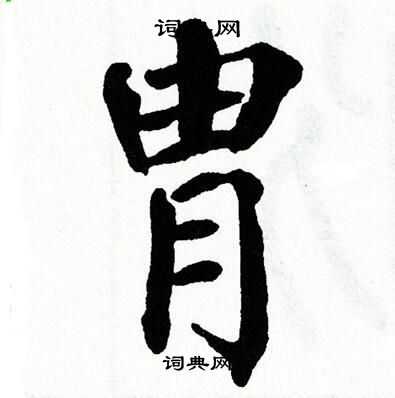 词典网
胄
词典网